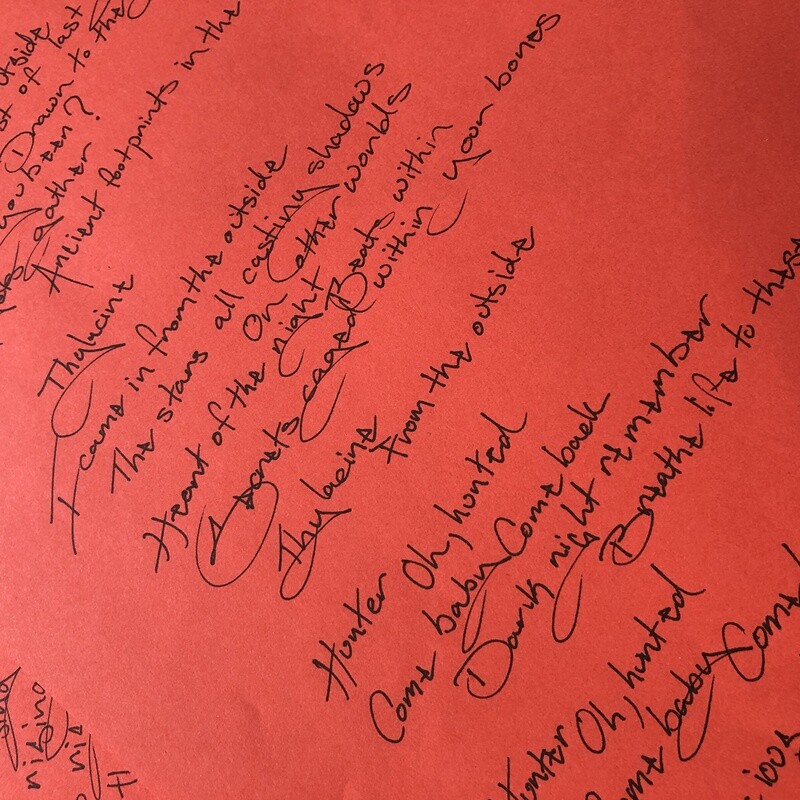 outside
st of last
Drawn to the
you been?
gather
Ancient footprints in the
Thylacine
I came in from the outside
The stars all casting shadows
On other worlds
Heart of the night Beats within
Secrets caged within your bones
Thylacine
From the outside
Hunter Oh, hunted
Come baby Come back
Dark night remember
Breathe life to these
Hunter Oh, hunted
Come baby Come